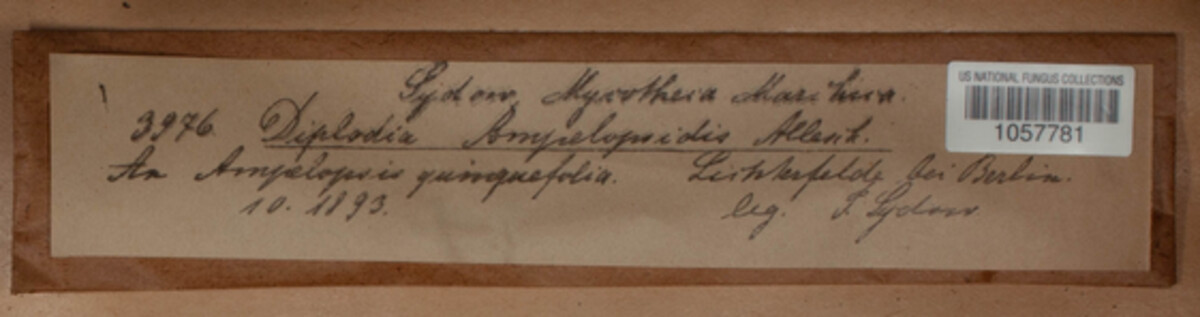 Sydow, Mycotheca Marchica.
3976. Diplodia Ampelopsidis Allesch.
An Ampelopsis quinquefolia. Lichterfelde bei Berlin.
10. 1893. leg. P. Sydow
US NATIONAL FUNGUS COLLECTIONS
1057781